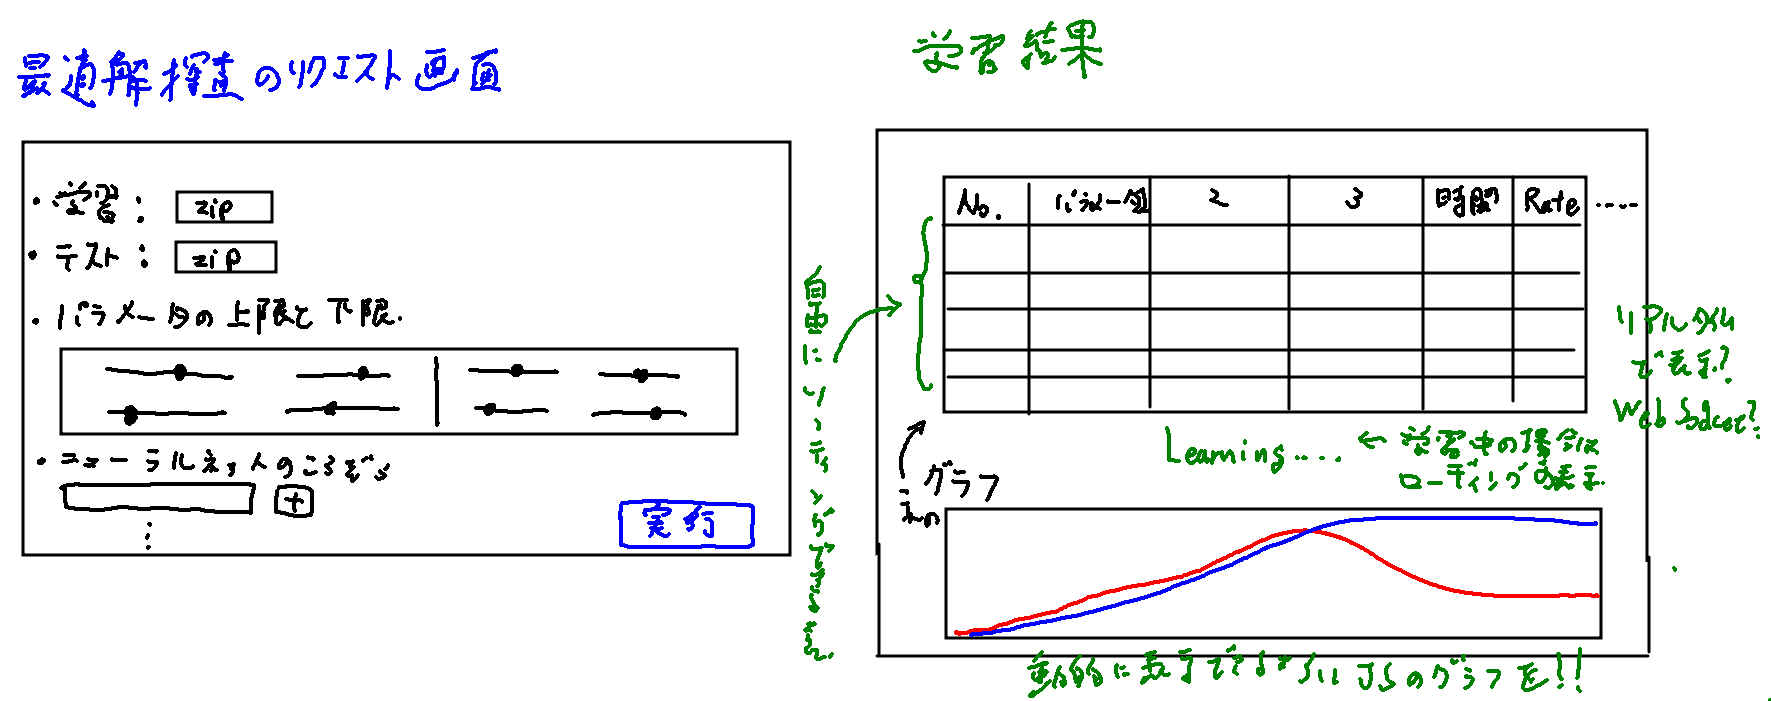 最適解探査のリクエスト画面
・学習: zip
・テスト: zip
・パラメータの上限と下限.
・ニューラルネットの
+
実行
学習結果
No. パラメータ1 2 3 時間 Rate ....
自由にソーティングできます。
リアルタイム
で表示?
Web Socket?
Learning.... ← 学習中の場合は
ローディングの表示.
グラフ
これの
動的に表示できるすごいJSのグラフを!!